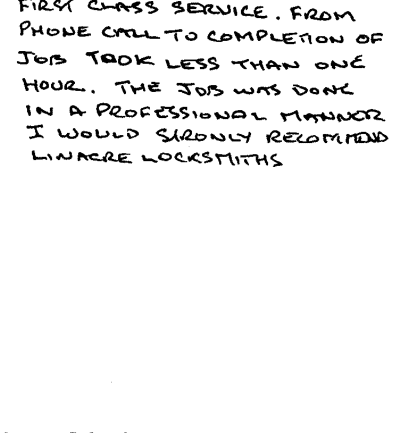 FIRST CLASS SERVICE. FROM
PHONE CALL TO COMPLETION OF
JOB TOOK LESS THAN ONE
HOUR. THE JOB WAS DONE
IN A PROFESSIONAL MANNOR
I WOULD SRONLY RECOMMEND
LINACRE LOCKSMITHS